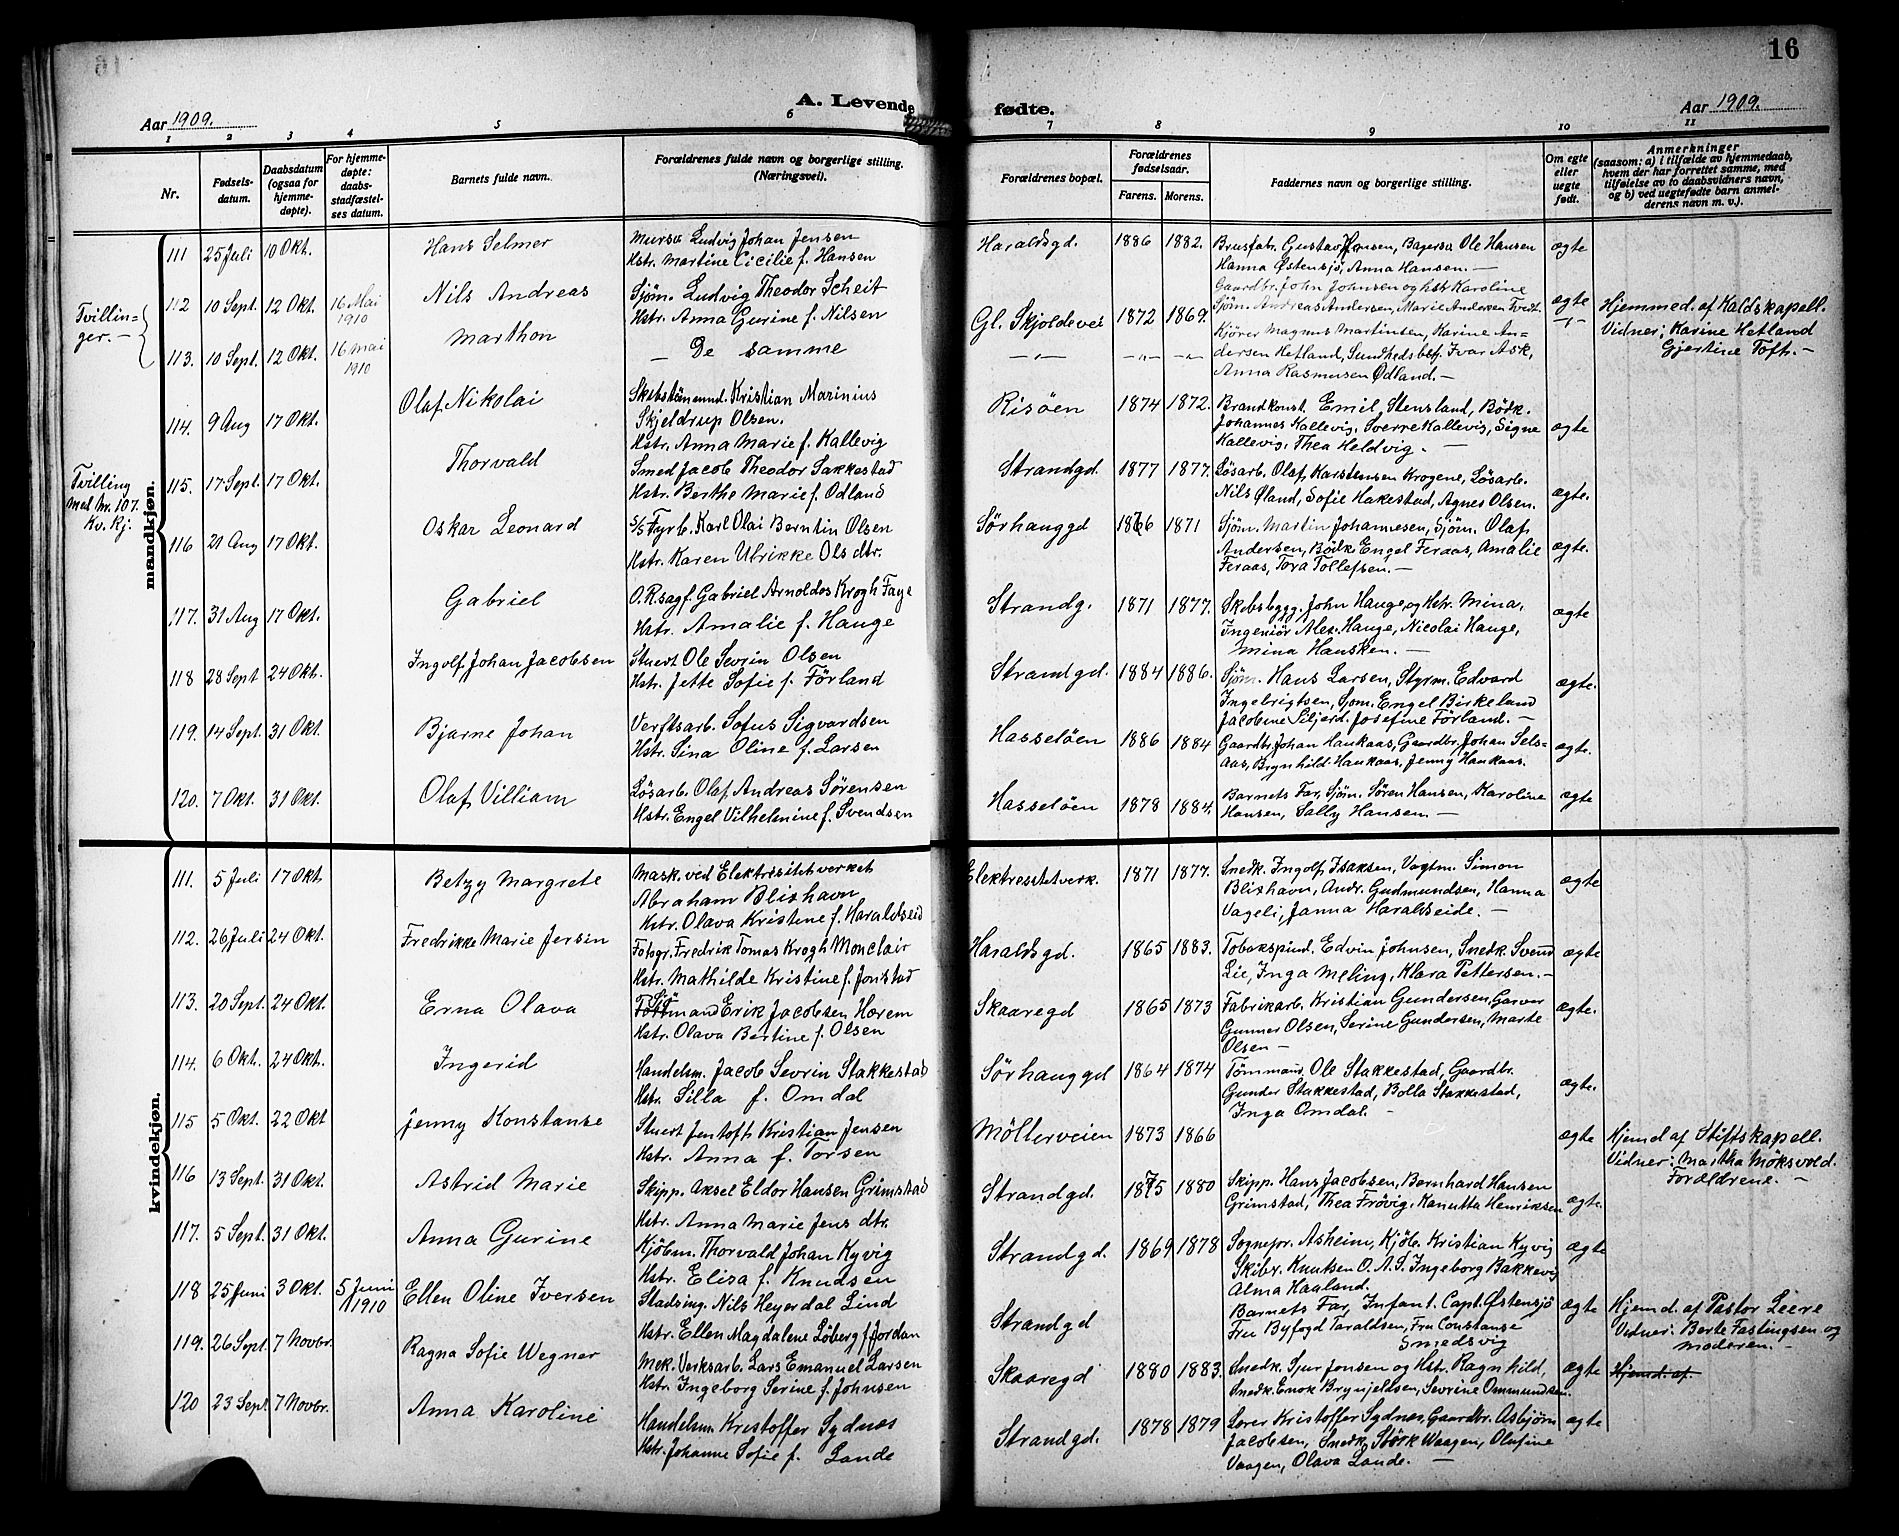 16
A. Levende fødte.
Aar 1909.
Aar 1909.
1 2 3 4 5 6 7 8 9 10 11
Nr.
Fødsels-
datum.
Daabsdatum
(ogsaa for
hjemme-
døpte).
For hjemme-
døpte:
daabs-
stadfæstel-
ses datum.
Barnets fulde navn.
Forældrenes fulde navn og borgerlige stilling.
(Næringsvei).
Forældrenes bopæl.
Forældrenes
fødselsaar.
Farens. Morens.
Faddernes navn og borgerlige stilling.
Om egte
eller
uegte
født.
Anmerkninger
(saasom: a) i tilfælde av hjemmedaab,
hvem der har forrettet samme, med
tilføielse av to daabsvidners navn,
og b) ved uegtefødte barn anmel-
derens navn m. v.).
mandkjøn.
111 25 Juli 10 Okt. Hans Selmer
Mursv Ludvig Johan Jensen
Hstr. Martine Cicilie f. Hansen
Haraldsgd. 1886 1882.
Brusfabr. Gustav Hansen, Bagersv Ole Hansen
Hanna Østensjö, Anna Hansen. —
ægte
Tvillin=
ger. —
112 10 Sept. 12 Okt. 16 Mai
1910
Nils Andreas
Sjöm. Ludvig Theodor Scheit
Hstr. Anna Gurine f. Nilsen
Gl. Skjoldevei 1872 1869.
Gaardbr. John Johnsen og hstr Karoline
Sjöm. Andreas Andersen, Marie Andersen Tvedt.
ægte
Hjemmed. af Kaldskapell.
Vidner; Karine Hetland
Gjertine Toft. —
113. 10 Sept. 12 Okt. 16 mai
1910
Marthon
— De samme
— „ — — „ — — „ —
Kjörer Magnus Martinsen, Karine An=
dersen Hetland, Sundhedsbetj. Ivar Ask,
Anna Rasmusen Ødland. —
114. 9 Aug 17 Okt. Olaf Nikolai
Skibstömmmd. Kristian Marinius
Skjeldrup Olsen.
Hstr. Anna Marie f. Kallevig
Risöen 1874 1872.
Brandkonst. Emil Stensland, Bödk.
Johannes Kallevig, Sverre Kallevig, Signe
Kallevig, Thea Heldvig. —
ægte
Tvilling
med Nr. 107.
Kv. Kj.
115. 17 Sept. 17 Okt. Thorvald
Smed Jacob Theodor Sakkestad
Hstr. Berthe Marie f. Odland
Strandgd. 1877 1877.
Løsarb. Olaf Karstensen Krogene, Løsarb.
Nils Øland, Sofie Hakestad, Agnes Olsen.
ægte.
116 21 Aug 17 Okt. Oskar Leonard
S/S Fyrb. Karl Olai Berntin Olsen
Hstr. Karen Ulrikke Ols dtr.
Sørhauggd 1876 1871
Sjöm. Martin Johannesen, Sjöm. Olaf
Andersen, Bödk. Engel Feraas, Amalie
Feraas, Tora Tollefsen. —
ægte.
117. 31 Aug 17 Okt. Gabriel
O.R.sagf. Gabriel Arnoldos Krogh Faye
Hstr. Amalie f. Hauge
Strandg. 1871 1877.
Skibsbygg. John Hauge, og Hstr. Mina,
Ingeniör Alex. Hauge, Nicolai Hauge,
Mina Hansken. —
ægte
118 28 Sept 24 Okt. Ingolf Johan Jacobsen
Stuert Ole Sevrin Olsen
Hstr. Jette Sofie f. Förland
Strandgd. 1884 1886.
Sjöm. Hans Larsen, Styrm. Edvard
Ingebrigtsen, Sjom. Engel Birkeland
Jacobine Siljerd. Josefine Förland. —
ægte.
119. 14 Sept. 31 Okt. Bjarne Johan
Verftsarb. Sofus Sigvardsen
Hstr. Sina Oline f. Larsen
Hasselöen 1886 1884
Gaardbr. Johan Haukaas, Gaardbr. Johan Sels=
aas, Brynhild Haukaas, Jenny Haukaas.
ægte.
120. 7 Okt. 31 Okt. Olaf Villiam
Løsarb. Olaf Andreas Sørensen
Hstr. Engel Vilhelmine f. Svendsen
Hasselöen 1878 1884.
Barnets Far, Sjöm. Sören Hansen, Karoline
Hansen, Sally Hansen. —
ægte
kvindekjøn.
111. 5 Juli 17 Okt. Betzy Margrete
Mask. ved Elektrisitetverket
Abraham Blixhavn
Hstr. Olava Kristine f. Haraldseid
Elektrssitetverk. 1871 1877.
Snedk. Ingolf Isaksen, Vagtm. Simon
Blixhavn, Andr. Gudmundsen, Hanna
Vageli, Janna Haraldseide. —
ægte
112. 26 Juli 24 Okt. Fredrikke Marie Jersin
Fotogr. Fredrik Tomas Krogh Monclair
Hstr. Mathilde Kristine f. Jonstad
Haraldsgd. 1865 1883.
Tobakspind. Edvin Johnsen, Snedk. Svend
Lie, Inga Meling, Klara Pettersen. —
ægte
113. 20 Sept. 24 Okt. Erna Olava
Erik Jacobsen Horem
Hstr. Olava Bertine f. Olsen
Skaaregd 1865 1873
Fabrikarb. Kristian Gundersen, Garver
Gunner Olsen, Serine Gundersen, Marte
Olsen —
ægte.
114. 6 Okt. 24 Okt. Ingerid
Handelsm. Jacob Sevrin Stakkestad
Hstr. Silla f. Omdal
Sörhauggd 1864 1874
Tömmmd. Ole Stakkestad, Gaardbr.
Gunder Stakkestad, Bolla Stakkestad,
Inga Omdal. —
ægte.
115 5 Okt. 22 Okt Jenny Konstanse
Stuert Jentoft Kristian Jensen
Hstr. Anna f. Torsen
Möllerveien 1873 1866
ægte
Hjemd af Stiftskapell.
Vidner: Martha Moksvold.
Forældrene. —
116 13 Sept. 31 Okt. Astrid Marie
Skipp. Aksel Eldor Hansen Grimstad
Hstr. Anna Marie Jens dtr.
Strandgd. 1875 1880
Skipp. Hans Jacobsen, Bernhard Hansen
Grimstad, Thea Frövig, Kanutta Henriksen
ægte.
117. 5 Sept. 31 Okt. Anna Gurine
Kjöbm. Thorvald Johan Kyvig
Hstr. Elisa f. Knudsen
Strandgd. 1869 1878
Sognepr. Asheim, Kjöb. Kristian Kyvig
Skibr. Knutsen O. A. S. Ingeborg Bakkevig
Alma Haaland.
ægte
118 25 Juni 3 Okt. 5 Juni
1910
Ellen Oline Iversen
Stadsing. Nils Heyerdal Lind
Hstr. Ellen Magdalene Löberg f. Jordan
Strandgd
Barnets Far, Infant. Capt. Østensjö
Fru Byfogd Taraldsen, Fru Constanse
Smedsvig
ægte
Hjemd. af Pastor Leere
Vidner: Berte Fastingsen og
moderen. —
119. 26 Sept. 7 Novbr. Ragna Sofie Wegner
Mek. Verksarb. Lars Emanuel Larsen
Hstr. Ingeborg Serine f. Johnsen
Skaaregd 1880 1883.
Snedk. Sjur Jonsen og Hstr. Ragnhild,
Snedk. Enok Brynjeldsen, Sevrine Ommundsen.
ægte
Hjemd. af
120 23 Sept 7 Novbr. Anna Karoline
Handelsm Kristoffer Sydnes
Hstr. Johanne Sofie f. Lande
Strandgd. 1878 1879
Lærer Kristoffer Sydnes, Gaardbr. Asbjörn
Jacobsen, Snedk. Störk Waagen, Olufine
Vaagen, Olava Lande. —
ægte